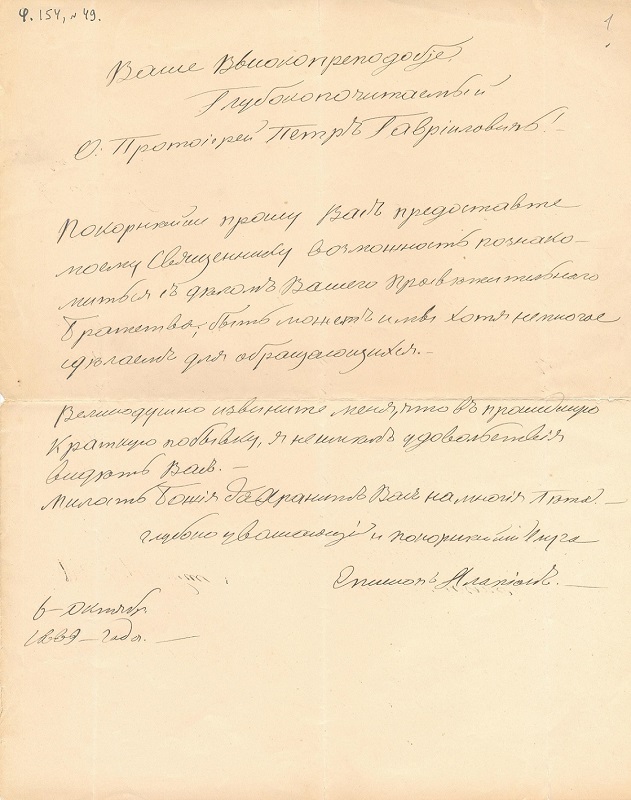 Ф. 154, № 49.
1
Ваше Высокопреподобіе
Глубокопочитаемый
О: Протоіерей Петръ Гавріиловичъ!
Покорнѣйши прошу Васъ предоставте
моему Священнику возможность познако-
миться съ дѣломъ Вашего
Братства, быть можетъ и мы хотя немногое
сдѣлаемъ для обращающихся.
Великодушно извините меня, что въ прошедшую
краткую побывку, я не имѣлъ удовольствія
видѣть Васъ.
Милость Божія да Хранитъ Васъ на многія Лѣта
глубоко уважающій и покорнѣйшій слуга
Епископъ
6 Октября
1889 года.